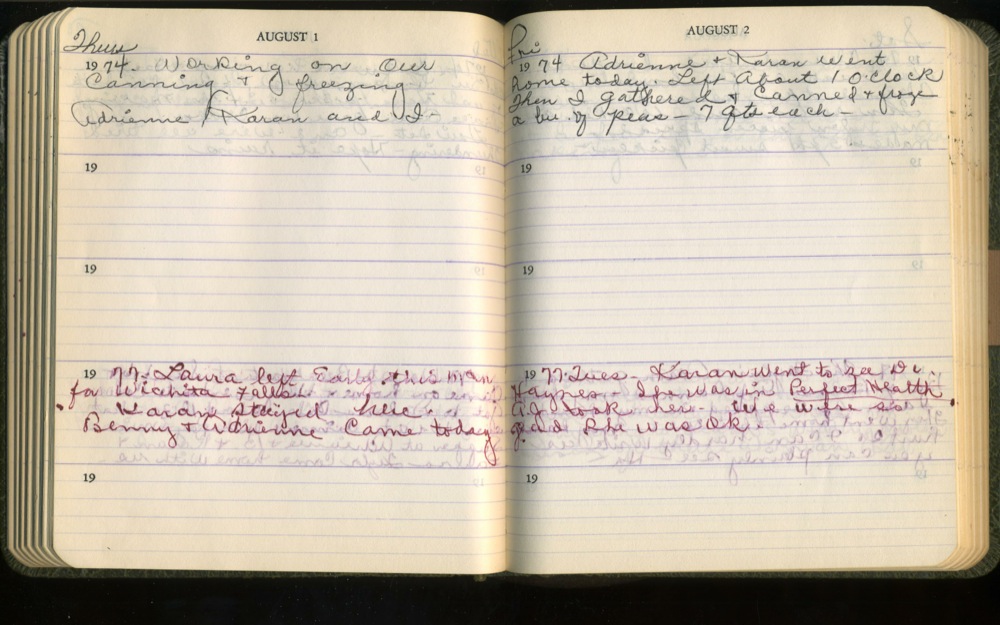 AUGUST 1
Thur
1974. Working on our
Canning & freezing
Adrienne, Karan and I -
19
19
19 77 - Laura left Early this
for Wichita Falls.
Karan stayed here.
Benny & Adrienne Came today
19
AUGUST 2
Fri
1974 Adrienne & Karan went
home today. Left About 1 O.clock
Then I gathered & Canned & froze
a bu. of peas - 7 qts each -
19
19
19 77. Tues - Karan went to see Dr.
Haynes - She was in Perfect Health
took her. We were so
glad she was ok.
19